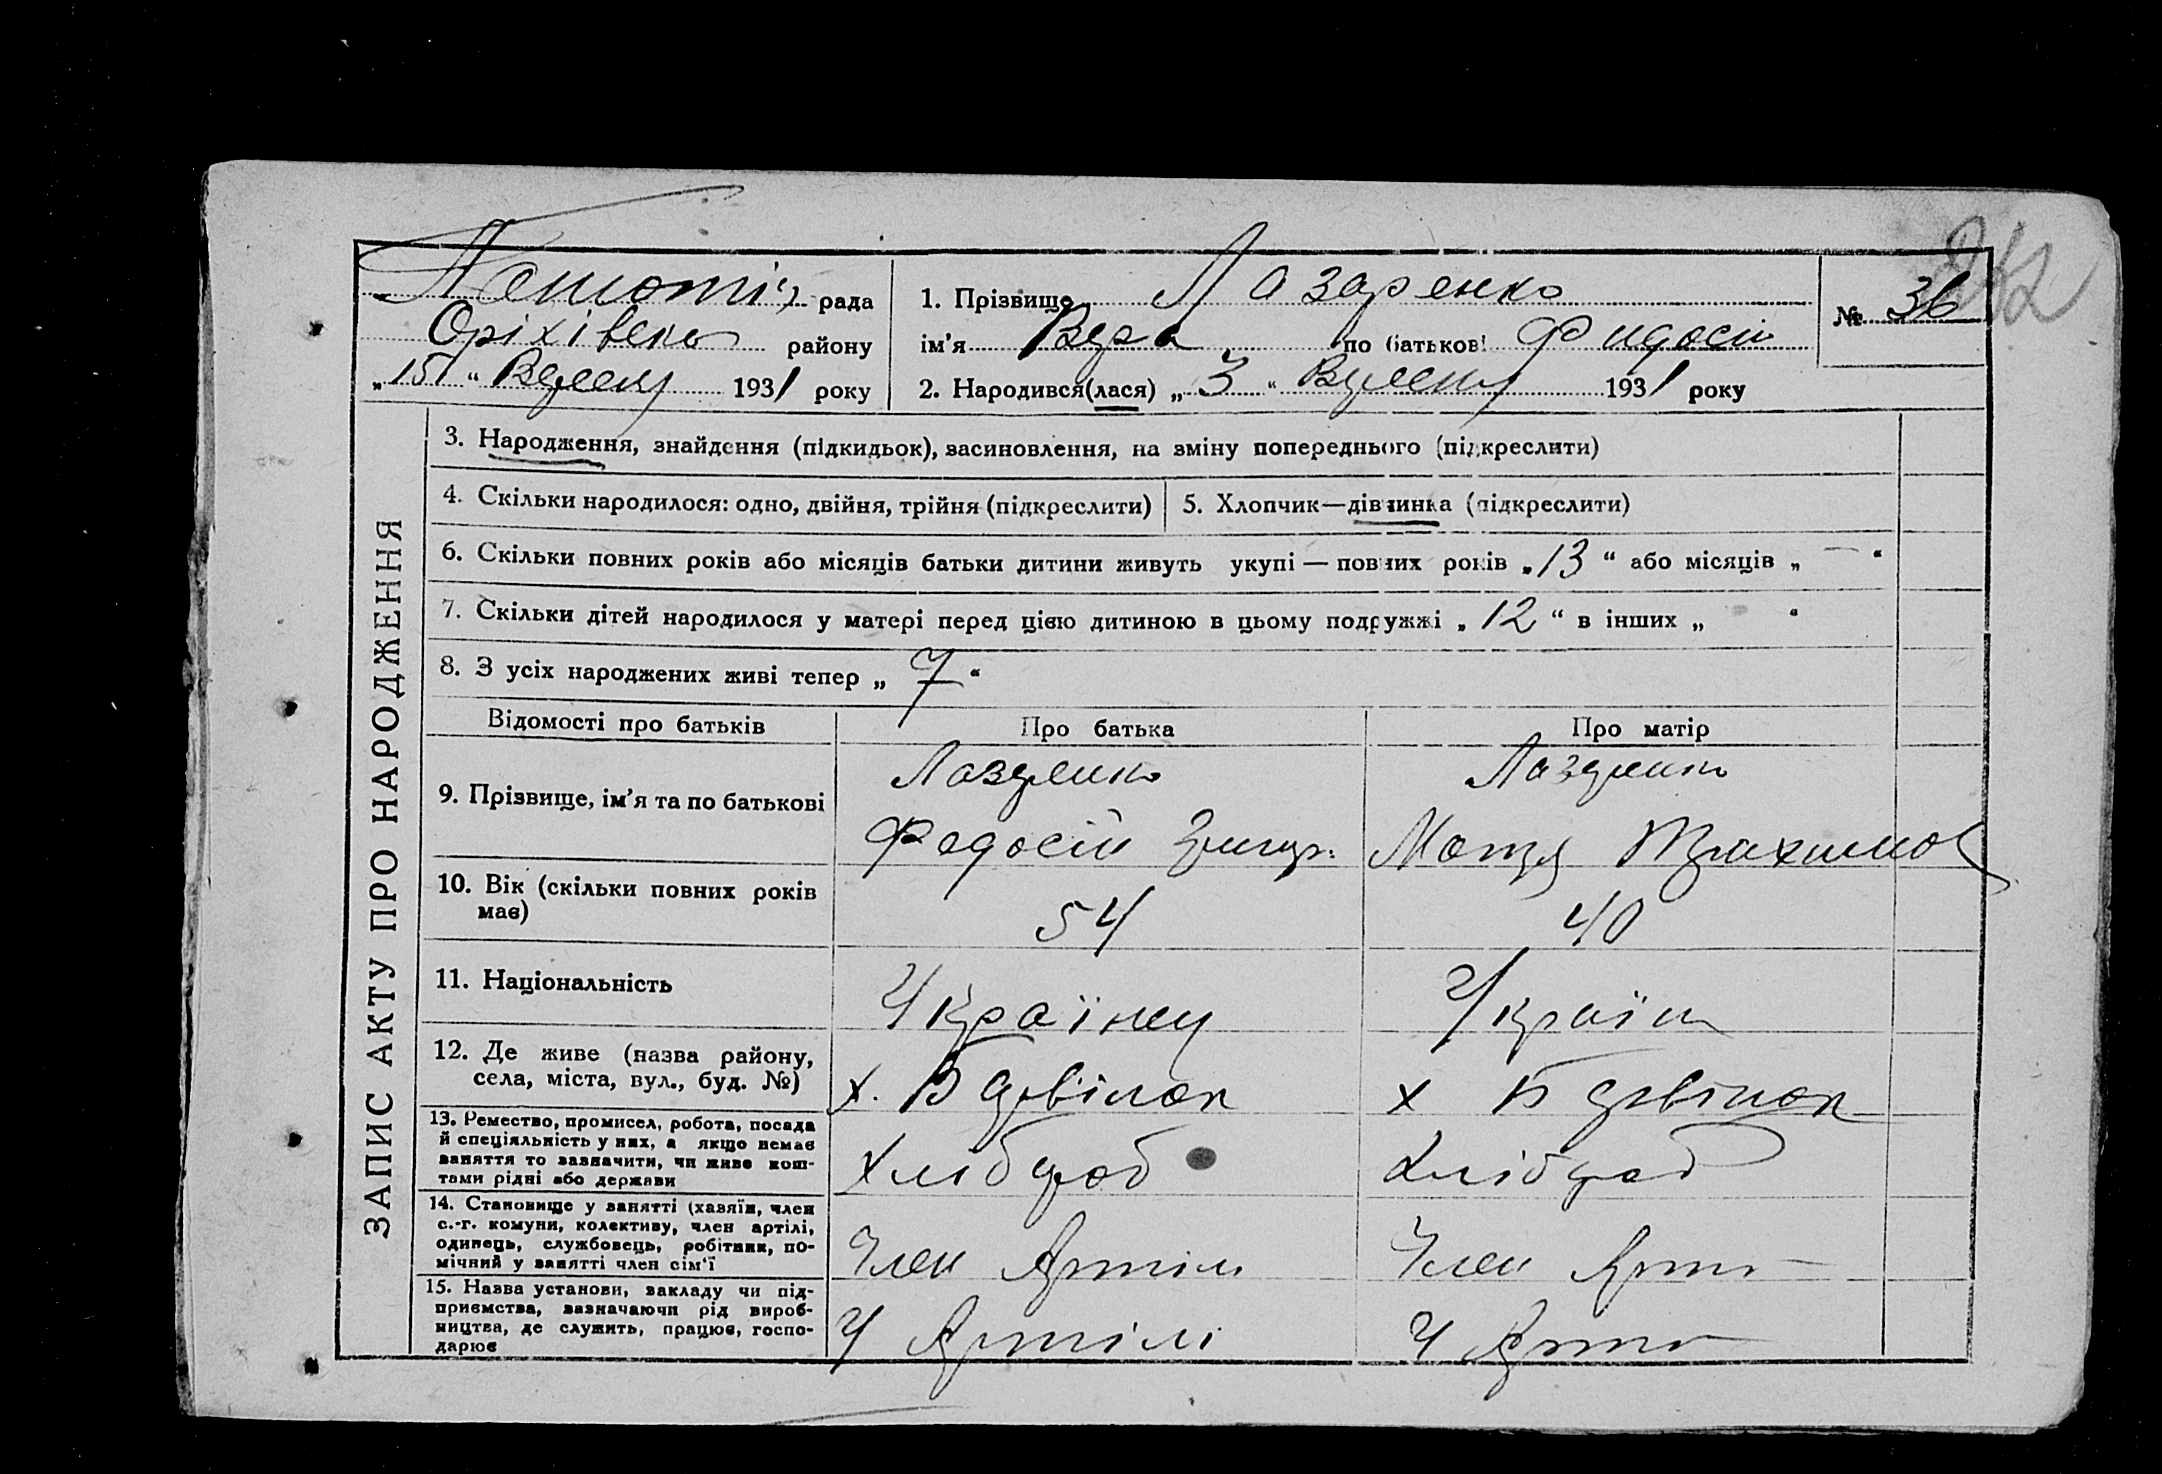 262
рада
Оріхівськ району
„15“ Вересн 1931 року
1. Прізвище Лазаренко
ім’я Вера по батькові Фидосій
2. Народився(лася) „3“ Вересня 1931 року
№ 36
ЗАПИС АКТУ ПРО НАРОДЖЕННЯ
3. Народження, знайдення (підкидьок), засиновлення, на зміну попереднього (підкреслити)
4. Скільки народилося: одно, двійня, трійня (підкреслити)
5. Хлопчик—дівчинка (підкреслити)
6. Скільки повних років або місяців батьки дитини живуть укупі — повних років „13“ або місяців „—“
7. Скільки дітей народилося у матері перед цією дитиною в цьому подружжі „12“ в інших „ “
8. З усіх народжених живі тепер „7“
Відомості про батьків
Про батька
Про матір
9. Прізвище, ім’я та по батькові
Лазаренко
Федосій Григор.
Лазаренко
Мотря
10. Вік (скільки повних років має)
54
40
11. Національність
Українец
Україн
12. Де живе (назва району,
села, міста, вул., буд. №)
х.
х
13. Ремество, промисел, робота, посада
й спеціяльність у них, а якщо немає
заняття то зазначити, чи живе кош-
тами рідні або держави
Хлібороб
Хлібороб
14. Становище у занятті (хазяїн, член
с.-г. комуни, колективу, член артілі,
одинець, службовець, робітник, по-
мічний у занятті член сім’ї
Член Артілі
Член Арті
15. Назва установи, закладу чи під-
приємства, зазначаючи рід вироб-
ництва, де служить, працює, госпо-
дарює
У Артілі
У Арті